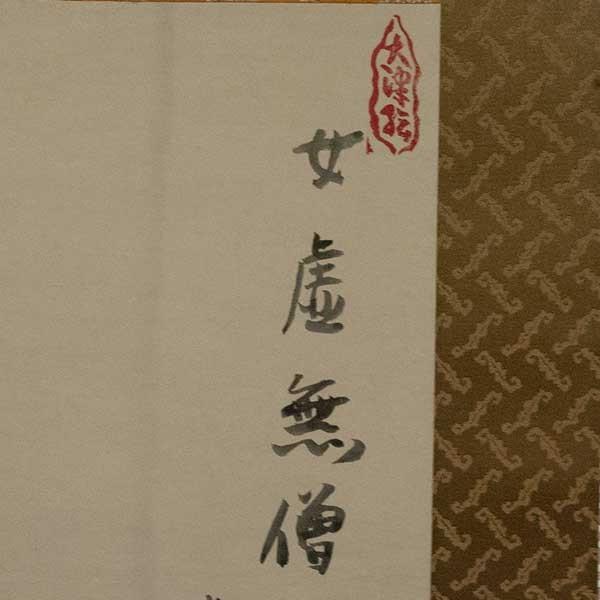 大津絵
女虚無僧